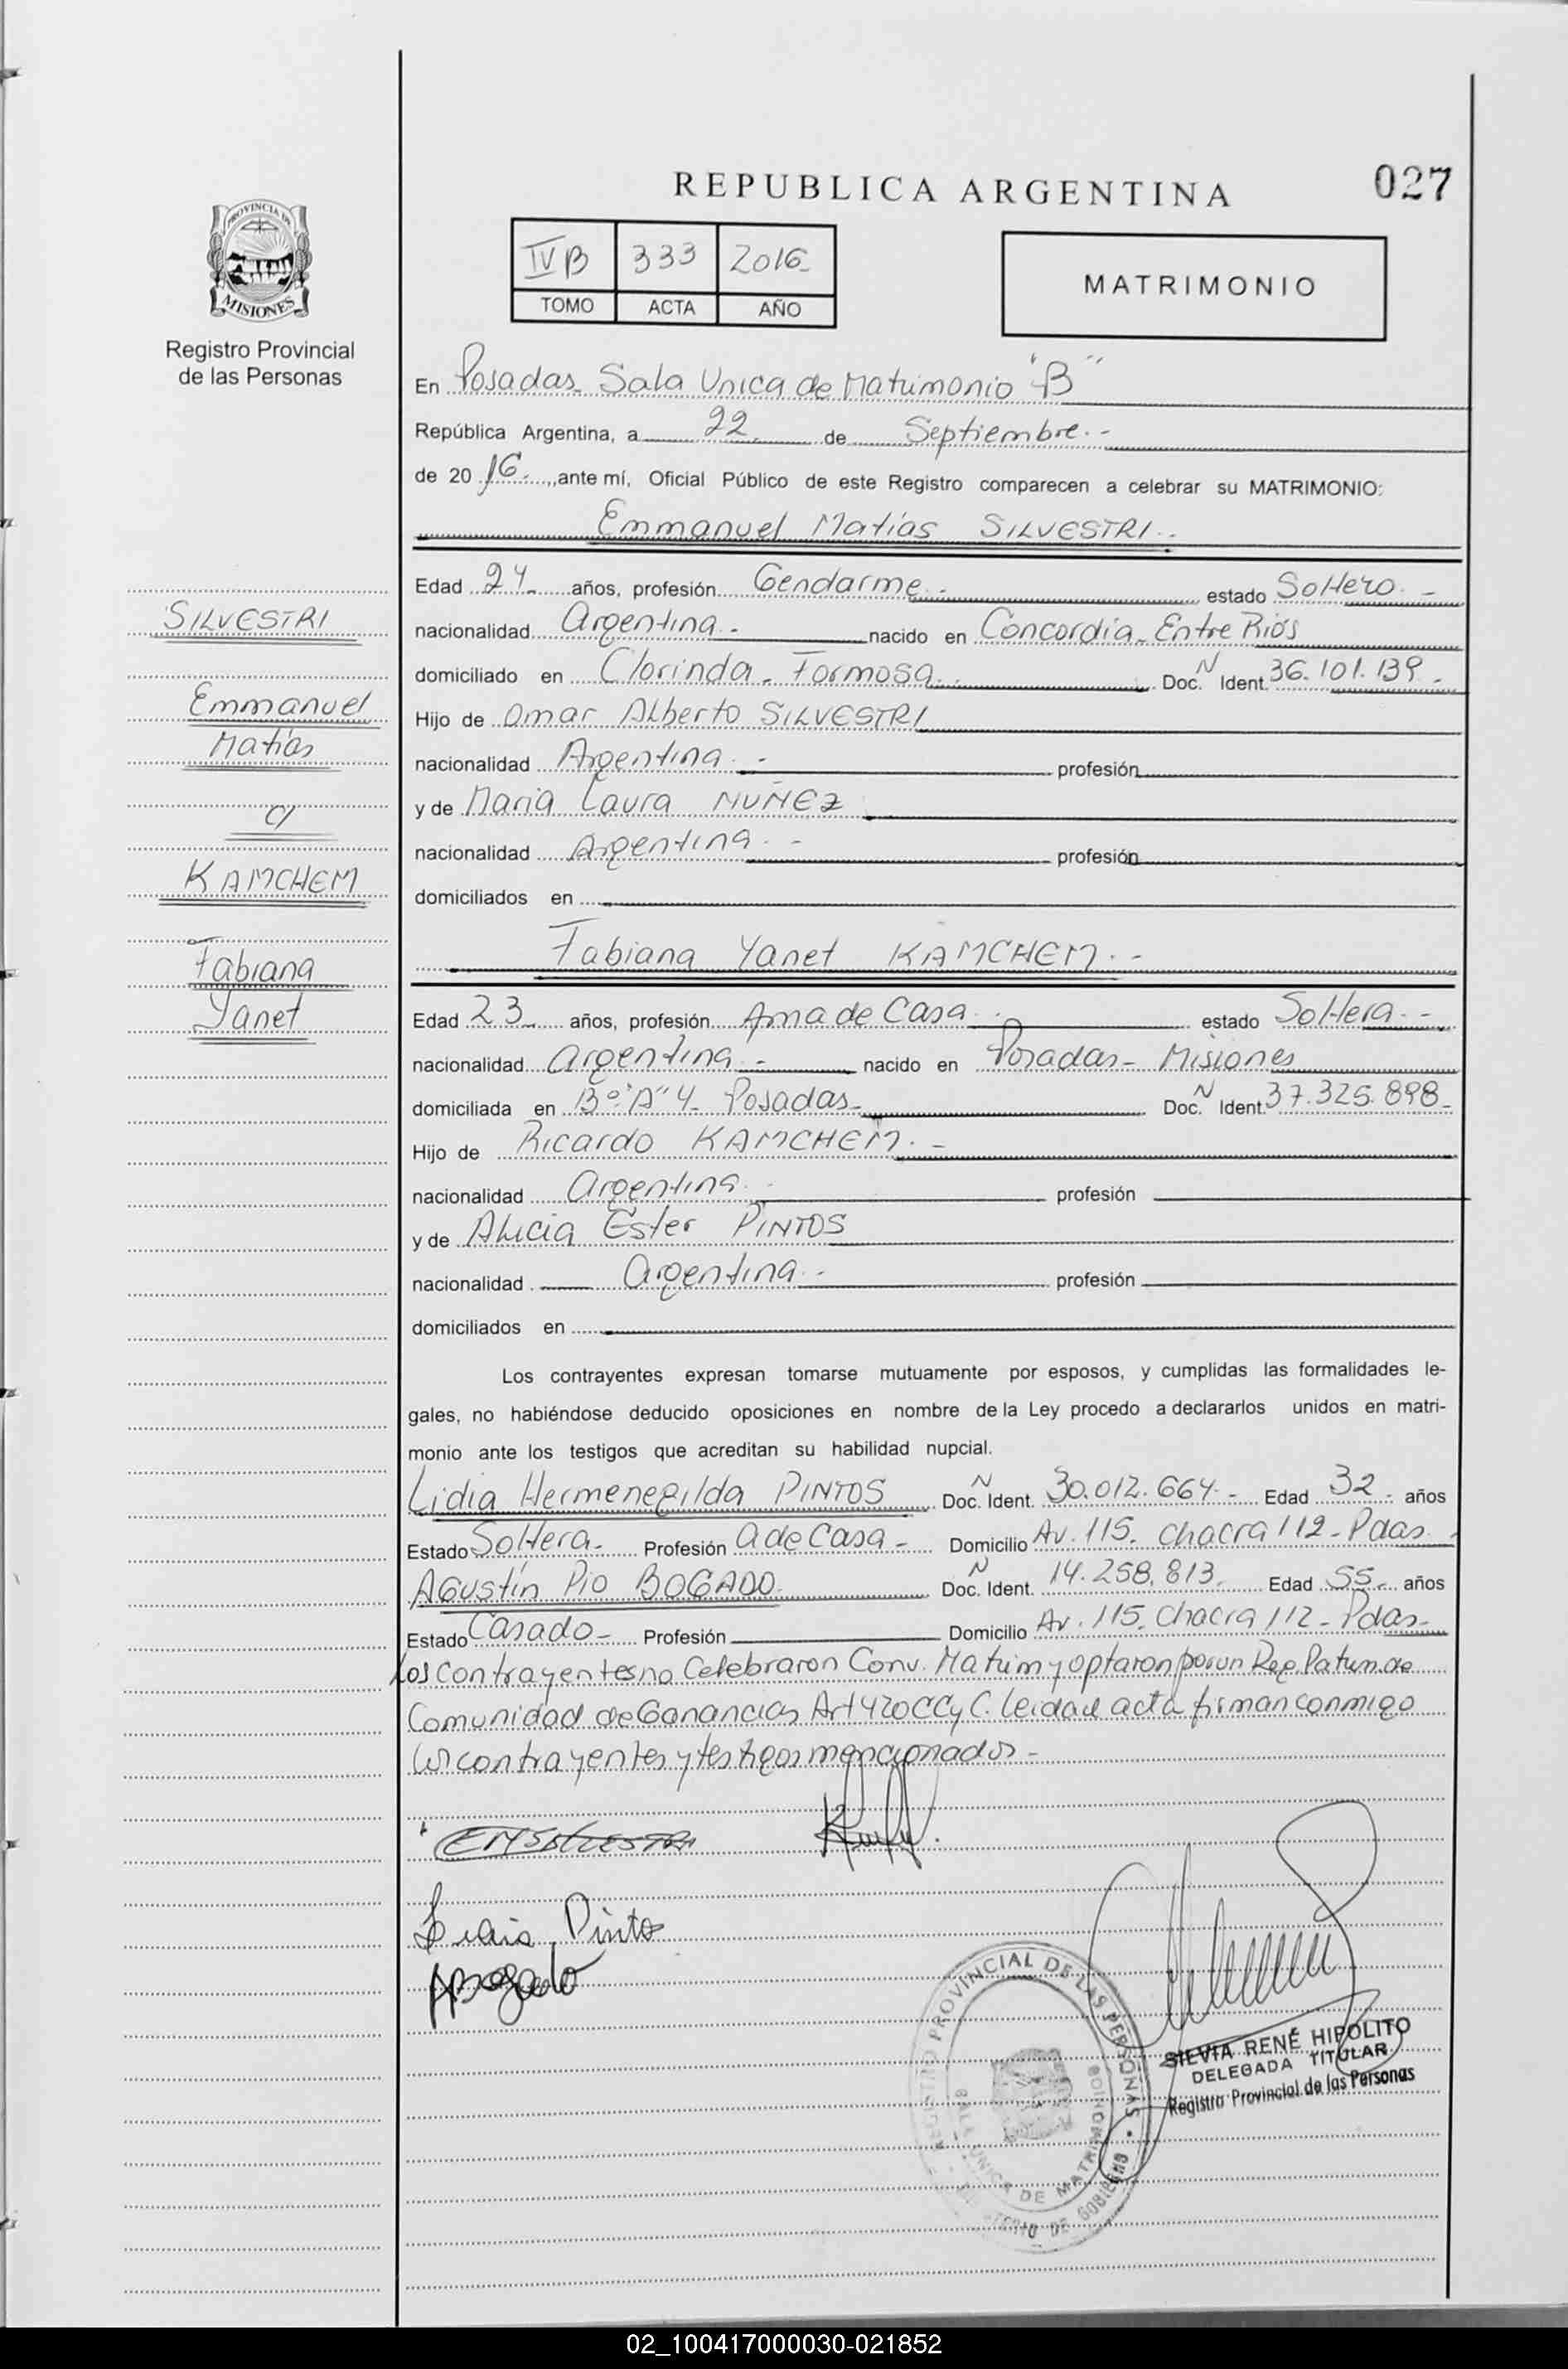 REPUBLICA ARGENTINA
027
PROVINCIA DE
MISIONES
Registro Provincial
de las Personas
IV B 333 2016
TOMO ACTA AÑO
MATRIMONIO
En Posadas. Sala Unica de Matrimonio "B"
República Argentina, a 22 de Septiembre.-
de 2016, ante mí, Oficial Público de este Registro comparecen a celebrar su MATRIMONIO:
Emmanuel Matías SILVESTRI.-
Edad 24 años, profesión Gendarme.- estado Soltero.-
nacionalidad Argentina.- nacido en Concordia. Entre Ríos
domiciliado en Clorinda. Formosa. Doc. N Ident. 36.101.139.-
Hijo de Omar Alberto SILVESTRI
nacionalidad Argentina.- profesión
y de Maria Laura NUÑEZ
nacionalidad Argentina.- profesión
domiciliados en
Fabiana Yanet KAMCHEM.-
Edad 23 años, profesión Ama de Casa. estado Soltera.-
nacionalidad Argentina.- nacido en Posadas- Misiones
domiciliada en Bº "A" 4- Posadas- Doc. N Ident. 37.325.898-
Hijo de Ricardo KAMCHEM.-
nacionalidad Argentina.- profesión
y de Alicia Ester PINTOS
nacionalidad Argentina.- profesión
domiciliados en
SILVESTRI
Emmanuel
Matías
c/
KAMCHEM
Fabiana
Yanet
Los contrayentes expresan tomarse mutuamente por esposos, y cumplidas las formalidades le-
gales, no habiéndose deducido oposiciones en nombre de la Ley procedo a declararlos unidos en matri-
monio ante los testigos que acreditan su habilidad nupcial.
Lidia Hermenegilda PINTOS Doc. N Ident. 30.012.664.- Edad 32 años
Estado Soltera- Profesión A de Casa- Domicilio Av. 115. chacra 112- Pdas.-
Agustín Pio BOGADO Doc. N Ident. 14.258.813. Edad 55 años
Estado Casado- Profesión Domicilio Av. 115. Chacra 112- Pdas-
Los contrayentes no Celebraron Conv. Matrim y optaron por un Reg. Patrim. de
Comunidad de Ganancias Art 420 CCy C. leida el acta firman conmigo
los contrayentes y testigos mencionados-
EMSilvestri
Lidia Pintos
ABogado
REGISTRO PROVINCIAL DE LAS PERSONAS
SALA UNICA DE MATRIMONIOS
DE GOBIERNO
SILVIA RENÉ HIPOLITO
DELEGADA TITULAR
Registro Provincial de las Personas
02_100417000030-021852